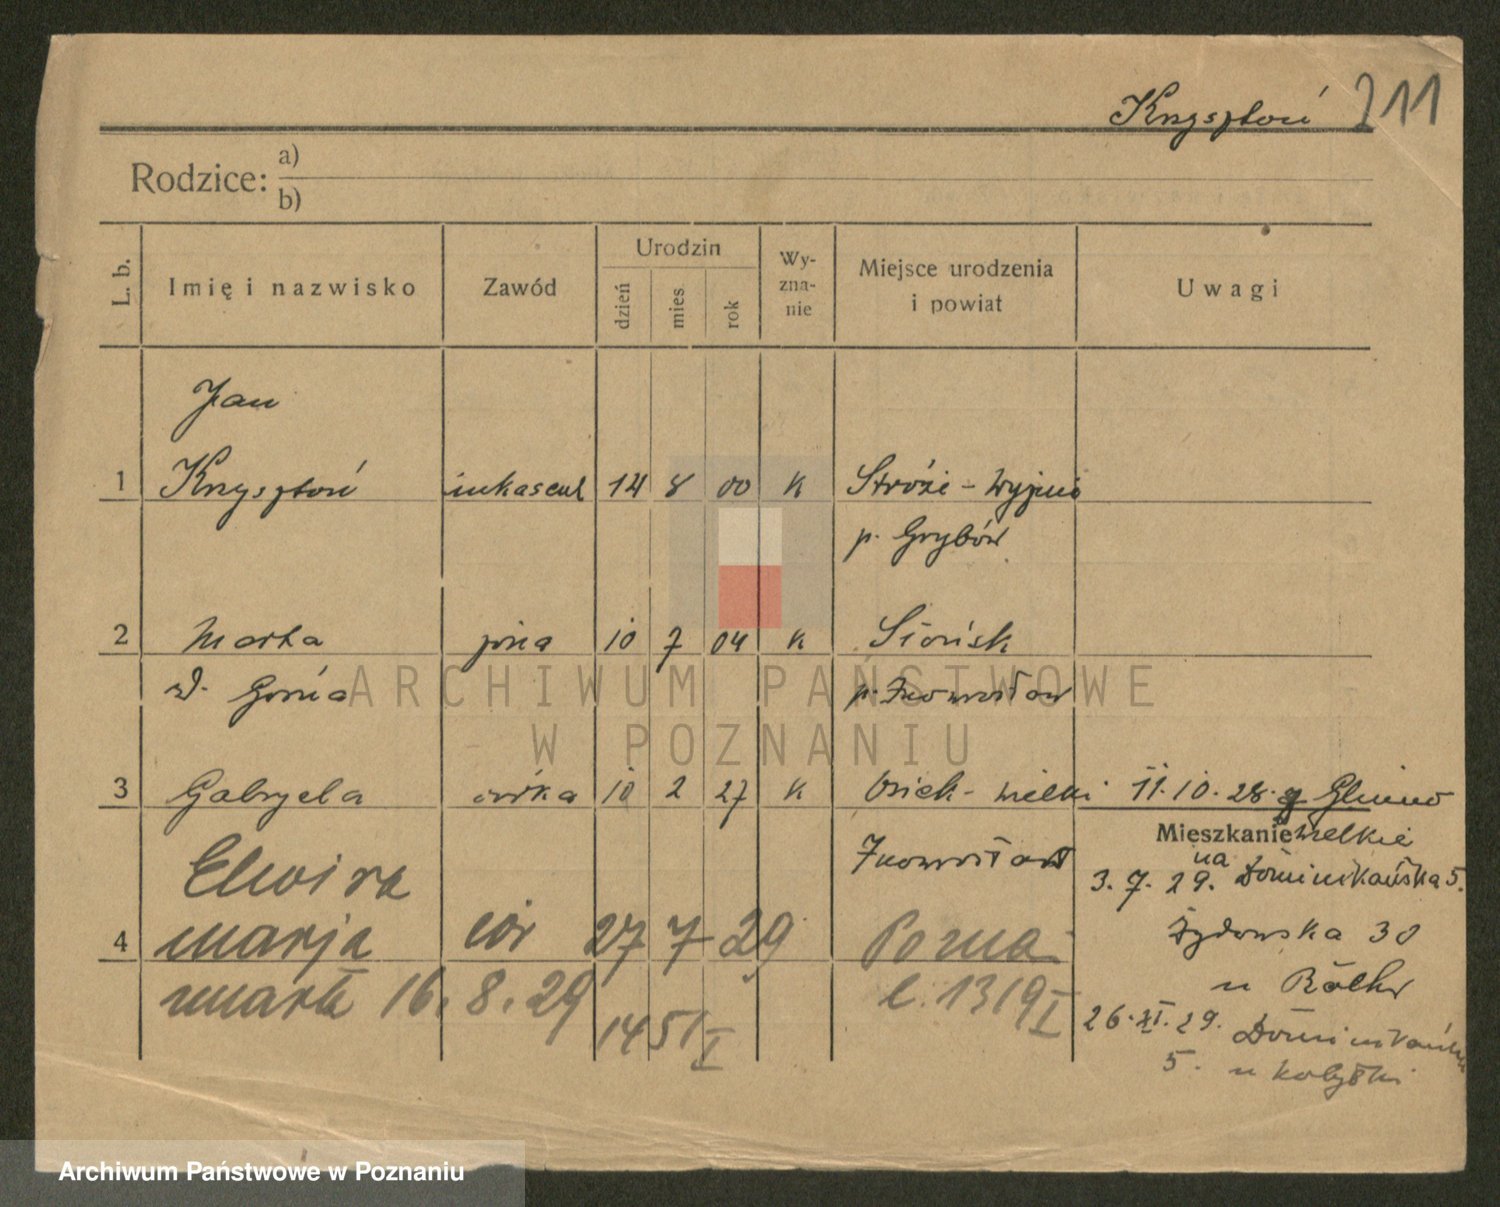 Krzysztoń 211
Rodzice: a)
b)
L. b.
Imię i nazwisko
Zawód
Urodzin
dzień
mies
rok
Wy-
zna-
nie
Miejsce urodzenia
i powiat
Uwagi
Jan
1 Krzysztoń inkasent 14 8 00 K Stróże - Wyżnie
p. Grybów
2 Marta żona 10 7 04 K Słońsk
p. Inowrocław
3 Gabryela córka 10 2 27 K Osiek - wielki 11.10.28.
Inowrocław
Mieszkanie
wielkie
3.7.29. na Dominikańska 5.
Elwira
4 marja cór 27 7 29 Pozna
Żydowska 30
u
zmarła 16.8.29 l. 1319 I
1451 I
26.XI.29. Dominikańska
5. u
ARCHIWUM PAŃSTWOWE
W POZNANIU
Archiwum Państwowe w Poznaniu